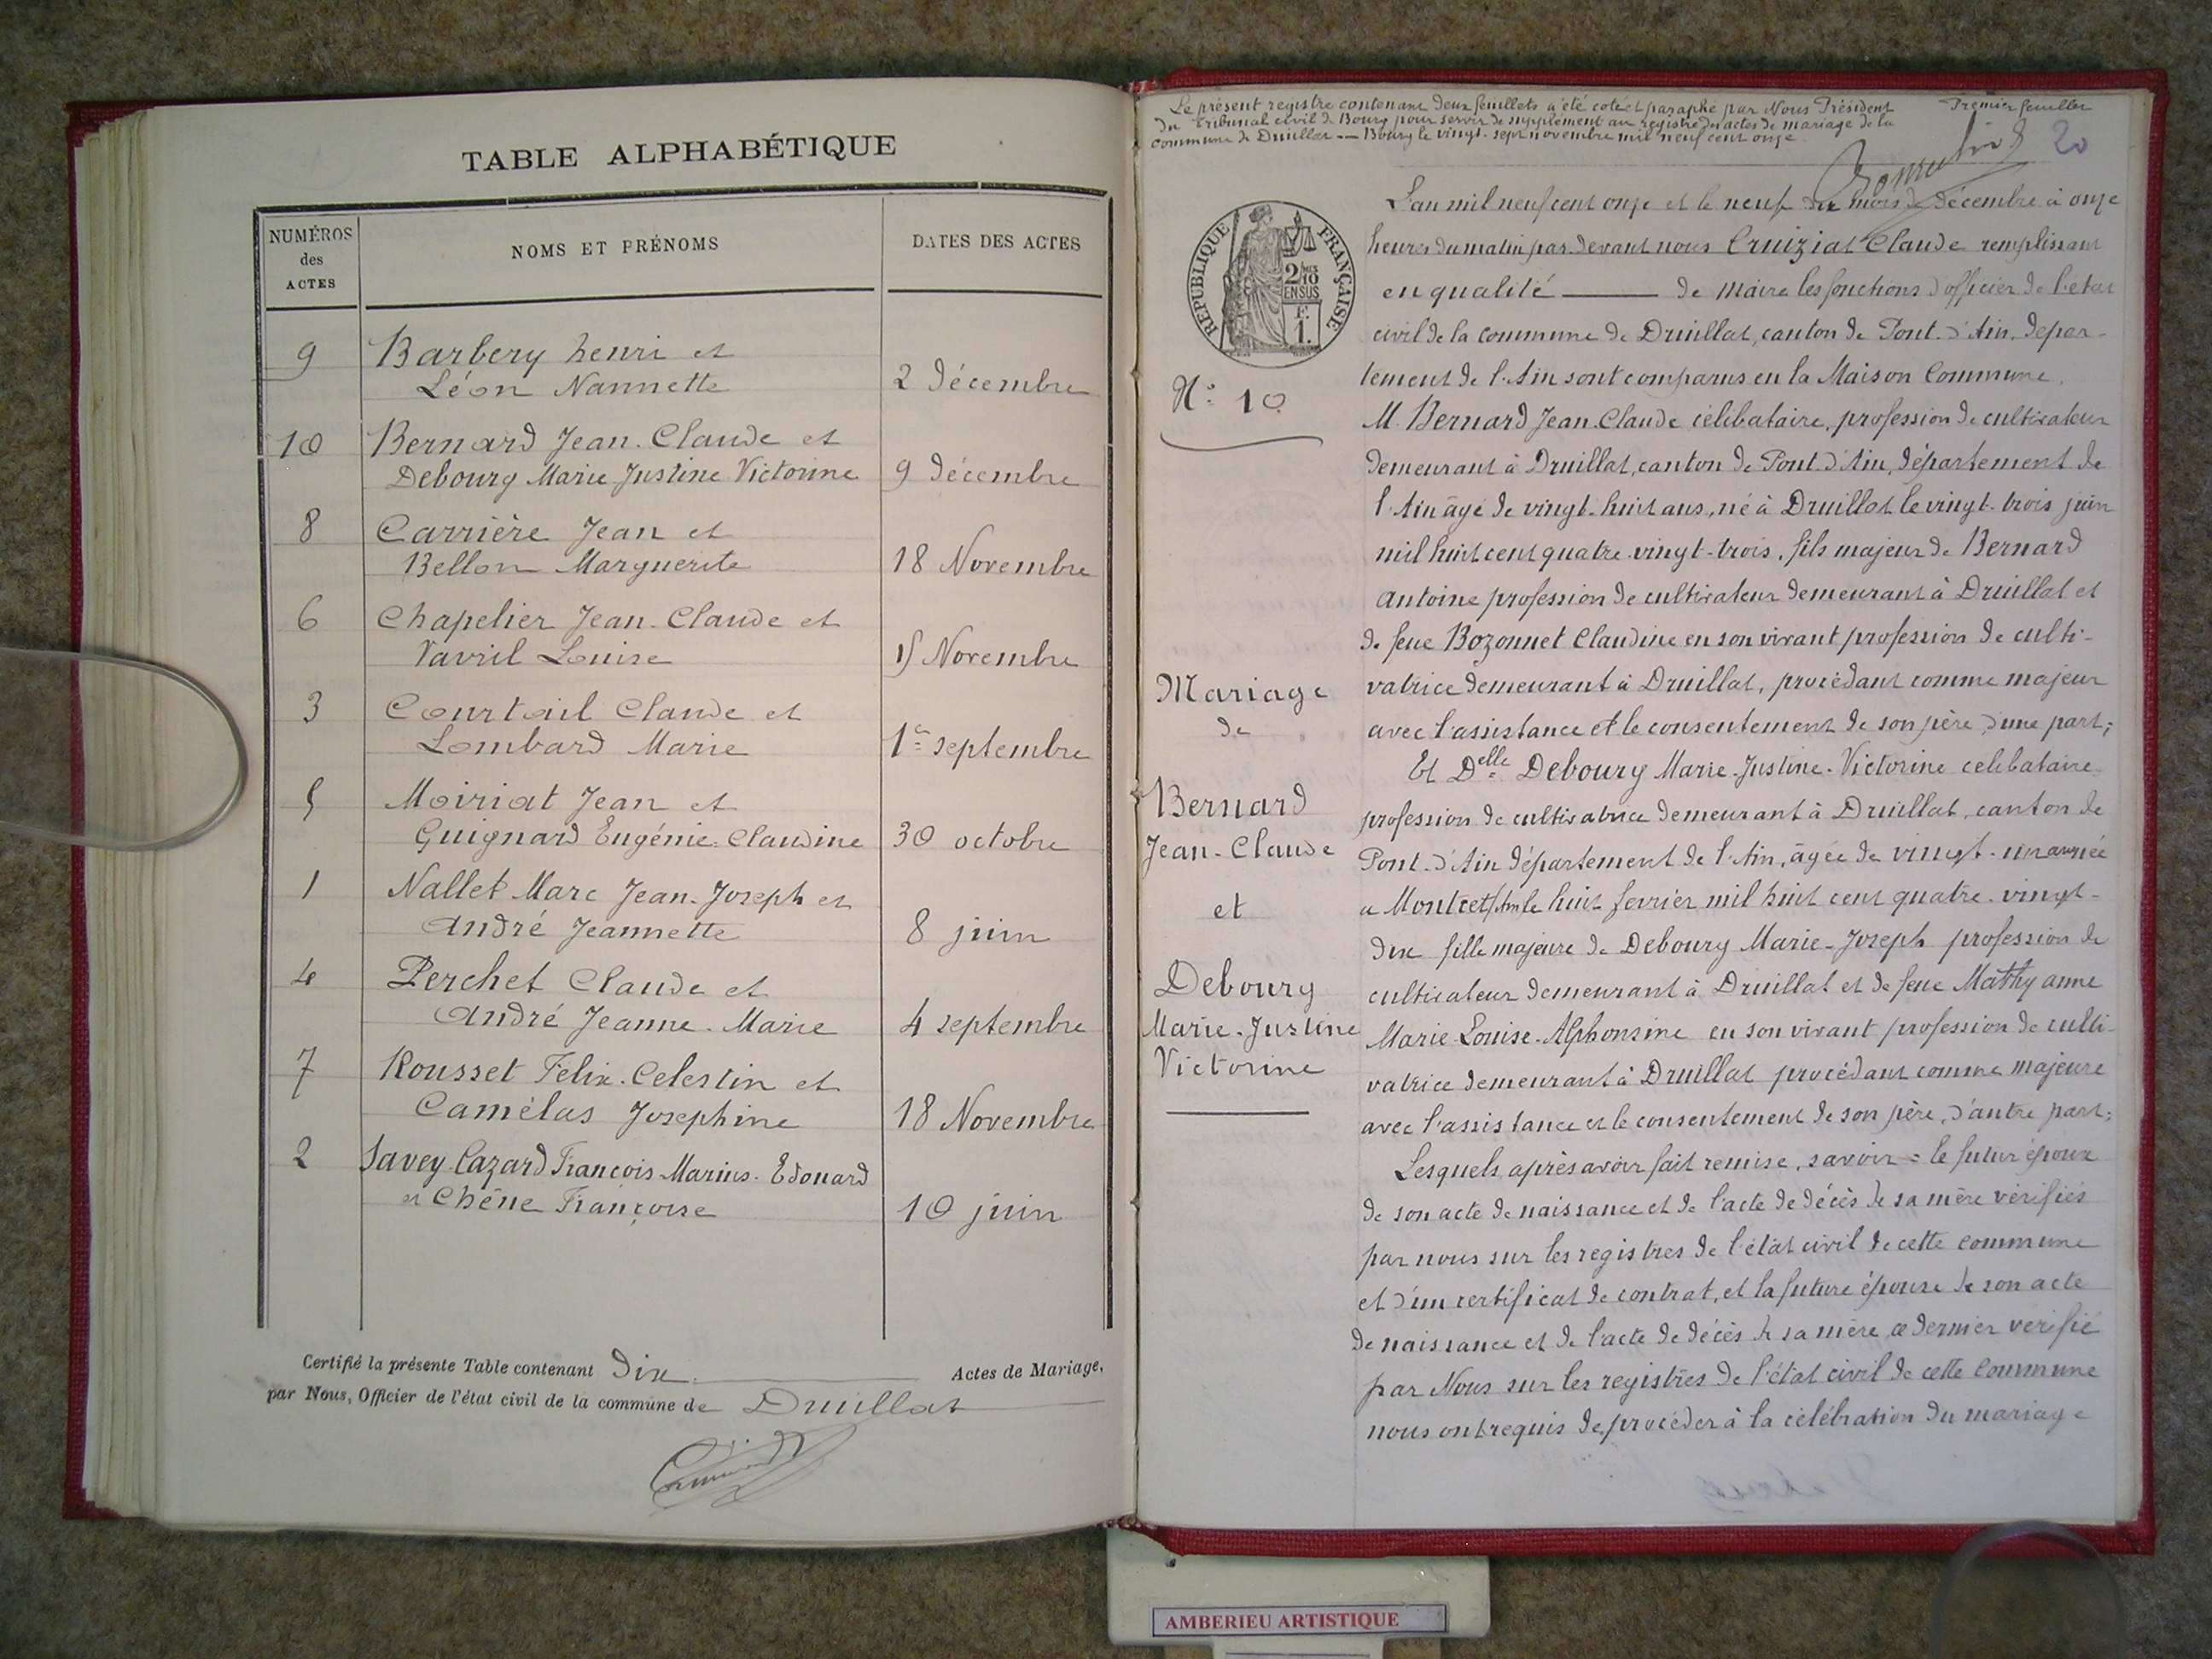 TABLE ALPHABÉTIQUE
NUMÉROS
des
ACTES
NOMS ET PRÉNOMS
DATES DES ACTES
9 Barbery henri et
Léon Nannette 2 décembre
10 Bernard Jean-Claude et
Debourg Marie Justine Victorine 9 décembre
8 Carrière Jean et
Bellon Marguerite 18 Novembre
6 Chapelier Jean-Claude et
Vavril Louise 15 Novembre
3 Courtoil Claude et
Lombard Marie 1er septembre
5 Moiriat Jean et
Guignard Eugénie-Claudine 30 octobre
1 Nallet Marc Jean-Joseph et
André Jeannette 8 juin
4 Perchet Claude et
André Jeanne-Marie 4 septembre
7 Rousset Felix-Celestin et
Camélas Josephine 18 Novembre
2 Savey-Cazard François-Marius-Edouard
et Chêne Françoise 10 juin
Certifié la présente Table contenant dix Actes de Mariage,
par Nous, Officier de l'état civil de la commune de Druillat
Le présent registre contenant deux feuillets a été coté et paraphé par Nous Président
du Tribunal civil de Bourg pour servir de supplément au registre des actes de mariage de la
commune de Druillat — Bourg le vingt-sept novembre mil neuf cent onze.
Premier feuillet
20
RÉPUBLIQUE FRANÇAISE
2/10
EN SUS
F.
1.
N° 10
Mariage
de
Bernard
Jean-Claude
et
Debourg
Marie-Justine
Victorine
L'an mil neuf cent onze et le neuf du mois de décembre à onze
heures du matin par devant nous Cruiziat Claude remplissant
en qualité — de maire les fonctions d'officier de l'état
civil de la commune de Druillat, canton de Pont-d'Ain, dépar-
tement de l'Ain sont comparus en la Maison Commune,
M. Bernard Jean-Claude célibataire, profession de cultivateur
demeurant à Druillat, canton de Pont-d'Ain, département de
l'Ain âgé de vingt-huit ans, né à Druillat le vingt-trois juin
mil huit cent quatre-vingt-trois, fils majeur de Bernard
Antoine profession de cultivateur demeurant à Druillat et
de feue Bozonnet Claudine en son vivant profession de culti-
vatrice demeurant à Druillat, procédant comme majeur
avec l'assistance et le consentement de son père, d'une part;
Et Delle Debourg Marie-Justine-Victorine celibataire
profession de cultivatrice demeurant à Druillat, canton de
Pont-d'Ain département de l'Ain, âgée de vingt-un an née
a Montcet (Ain) le huit fevrier mil huit cent quatre-vingt-
dix fille majeure de Debourg Marie-Joseph profession de
cultivateur demeurant à Druillat et de feue Mathy anne
Marie-Louise-Alphonsine en son vivant profession de culti-
vatrice demeurant à Druillat procédant comme majeure
avec l'assistance et le consentement de son père, d'autre part;
Lesquels, après avoir fait remise, savoir = le futur époux
de son acte de naissance et de l'acte de décès de sa mère vérifiés
par nous sur les registres de l'état civil de cette commune
et d'un certificat de contrat, et la future épouse de son acte
de naissance et de l'acte de décès de sa mère ce dernier vérifié
par Nous sur les registres de l'état civil de cette commune
nous ont requis de procéder à la célébration du mariage
AMBERIEU ARTISTIQUE